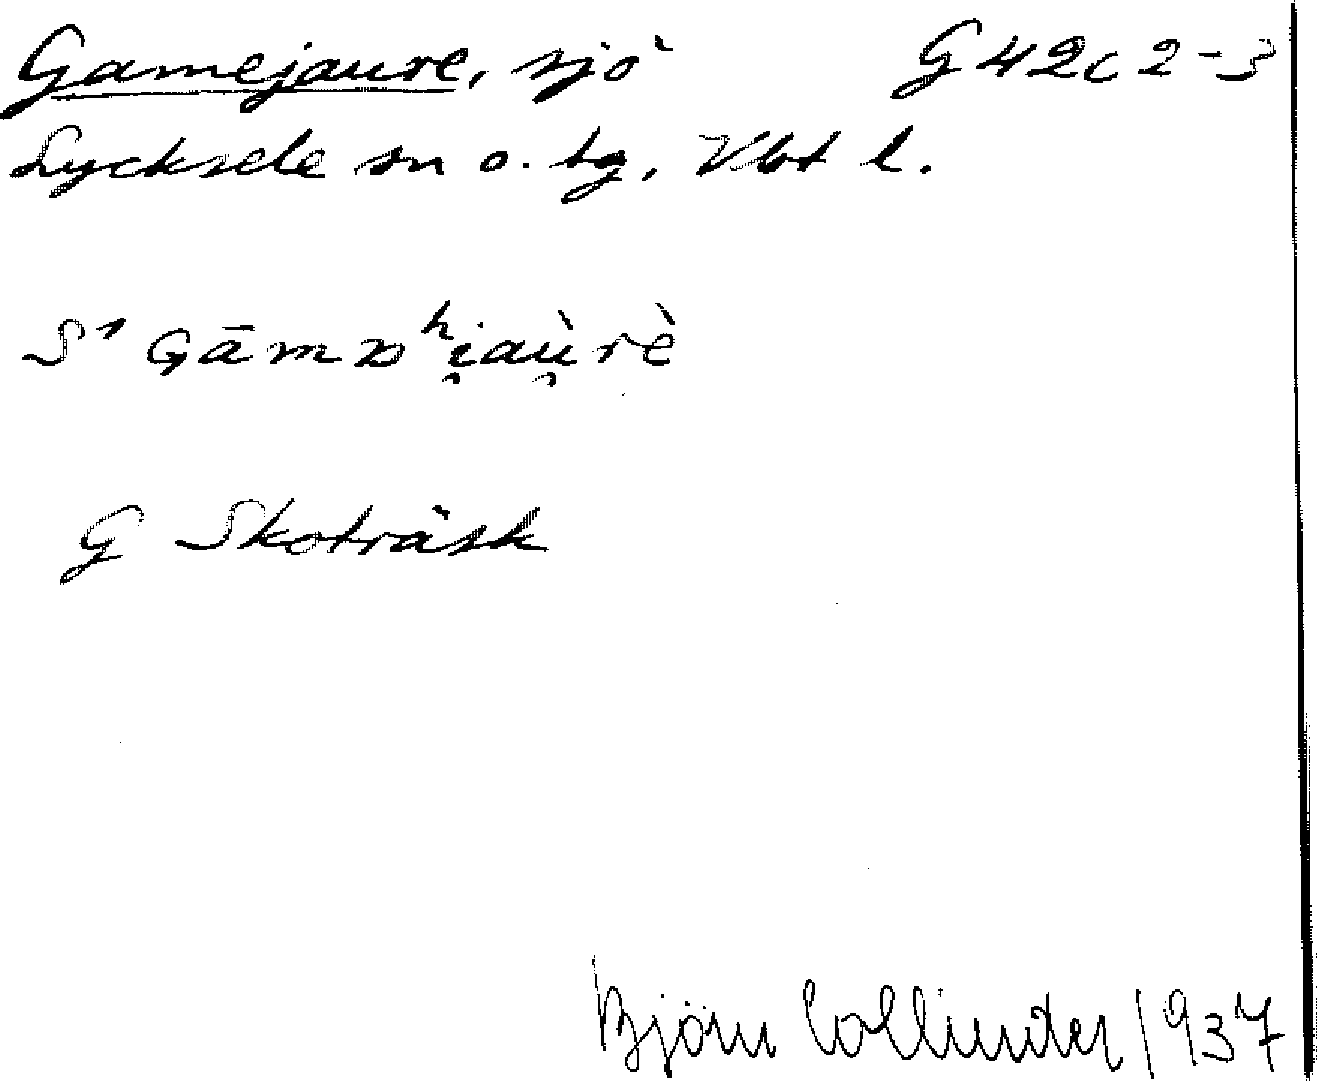 Gamejaure, sjö G 42c 2-3
Lycksele sn o. tg, Vbt l.
G Skoträsk
Björn Collinder 1937